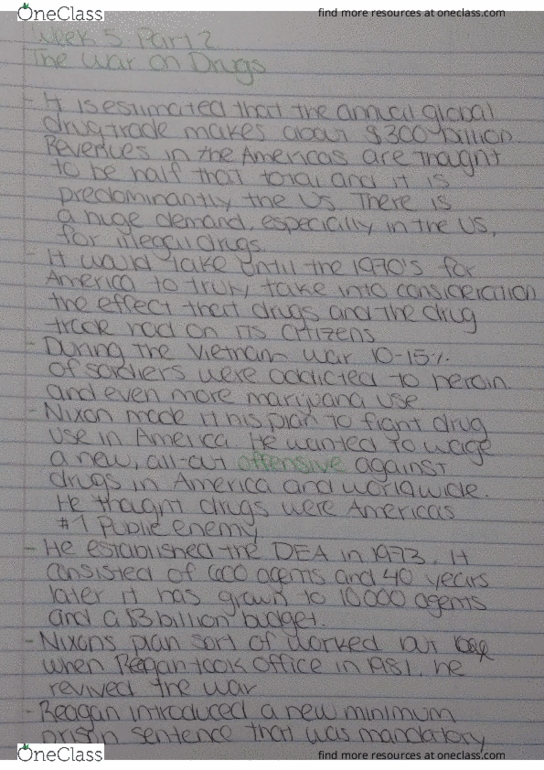 OneClass
find more resources at oneclass.com
Week 5 Part 2
The War on Drugs
- It is estimated that the annual global
drug trade makes about $300 billion.
Revenues in the Americas are thought
to be half that total and it is
predominantly the US. There is
a huge demand, especially in the US,
for illegal drugs.
- It would take until the 1970's for
America to truly take into consideration
the effect that drugs and the drug
trade had on its citizens
- During the Vietnam War 10-15%
of soldiers were addicted to heroin
and even more marijuana use
- Nixon made it his plan to fight drug
use in America. He wanted to wage
a new, all-out offensive against
drugs in America and worldwide.
He thought drugs were Americas
#1 Public enemy
- He established the DEA in 1973. It
consisted of agents and 40 years
later it has grown to 10,000 agents
and a $3 billion budget.
- Nixons plan sort of worked but
when Regan took office in 1981, he
revived the war
- Reagan introduced a new minimum
prison sentence that was mandatory
OneClass
find more resources at oneclass.com